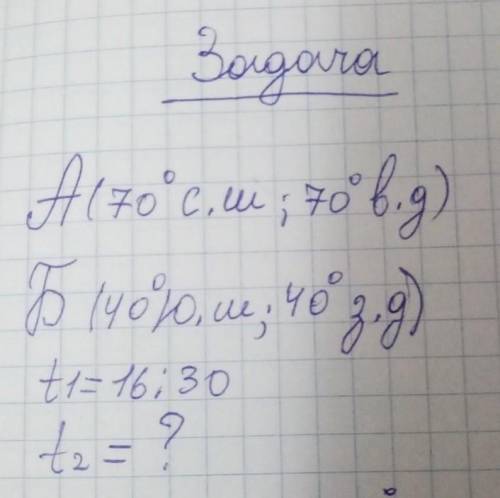 Задача
А(70° с.ш; 70° в.д)
Б (40°ю.ш; 40° з.д)
t1=16:30
t2 = ?